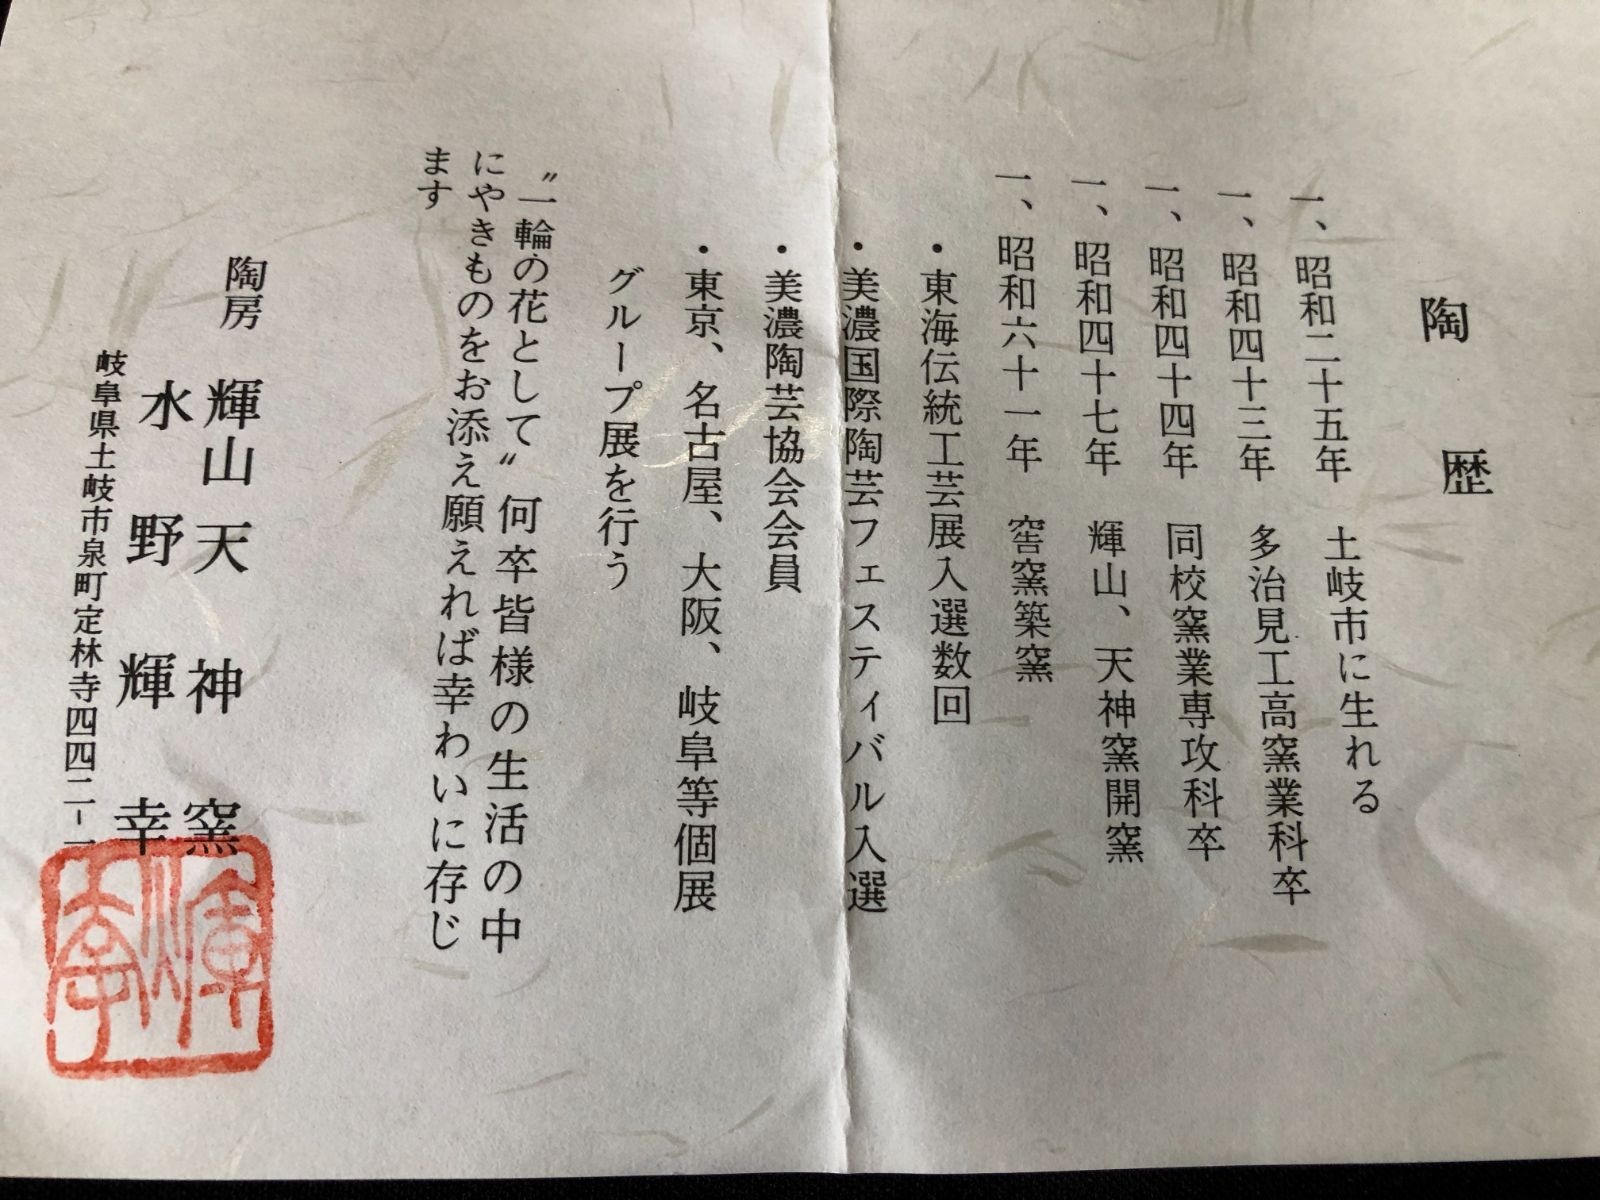 陶歴
一、昭和二十五年 土岐市に生れる
一、昭和四十三年 多治見工高窯業科卒
一、昭和四十四年 同校窯業専攻科卒
一、昭和四十七年 輝山、天神窯開窯
一、昭和六十一年 窖窯築窯
・東海伝統工芸展入選数回
・美濃国際陶芸フェスティバル入選
・美濃陶芸協会会員
・東京、名古屋、大阪、岐阜等個展
グループ展を行う
〝一輪の花として〟何卒皆様の生活の中
にやきものをお添え願えれば幸わいに存じ
ます
陶房 輝山天神窯
水野輝幸
岐阜県土岐市泉町定林寺四四二-一
輝幸